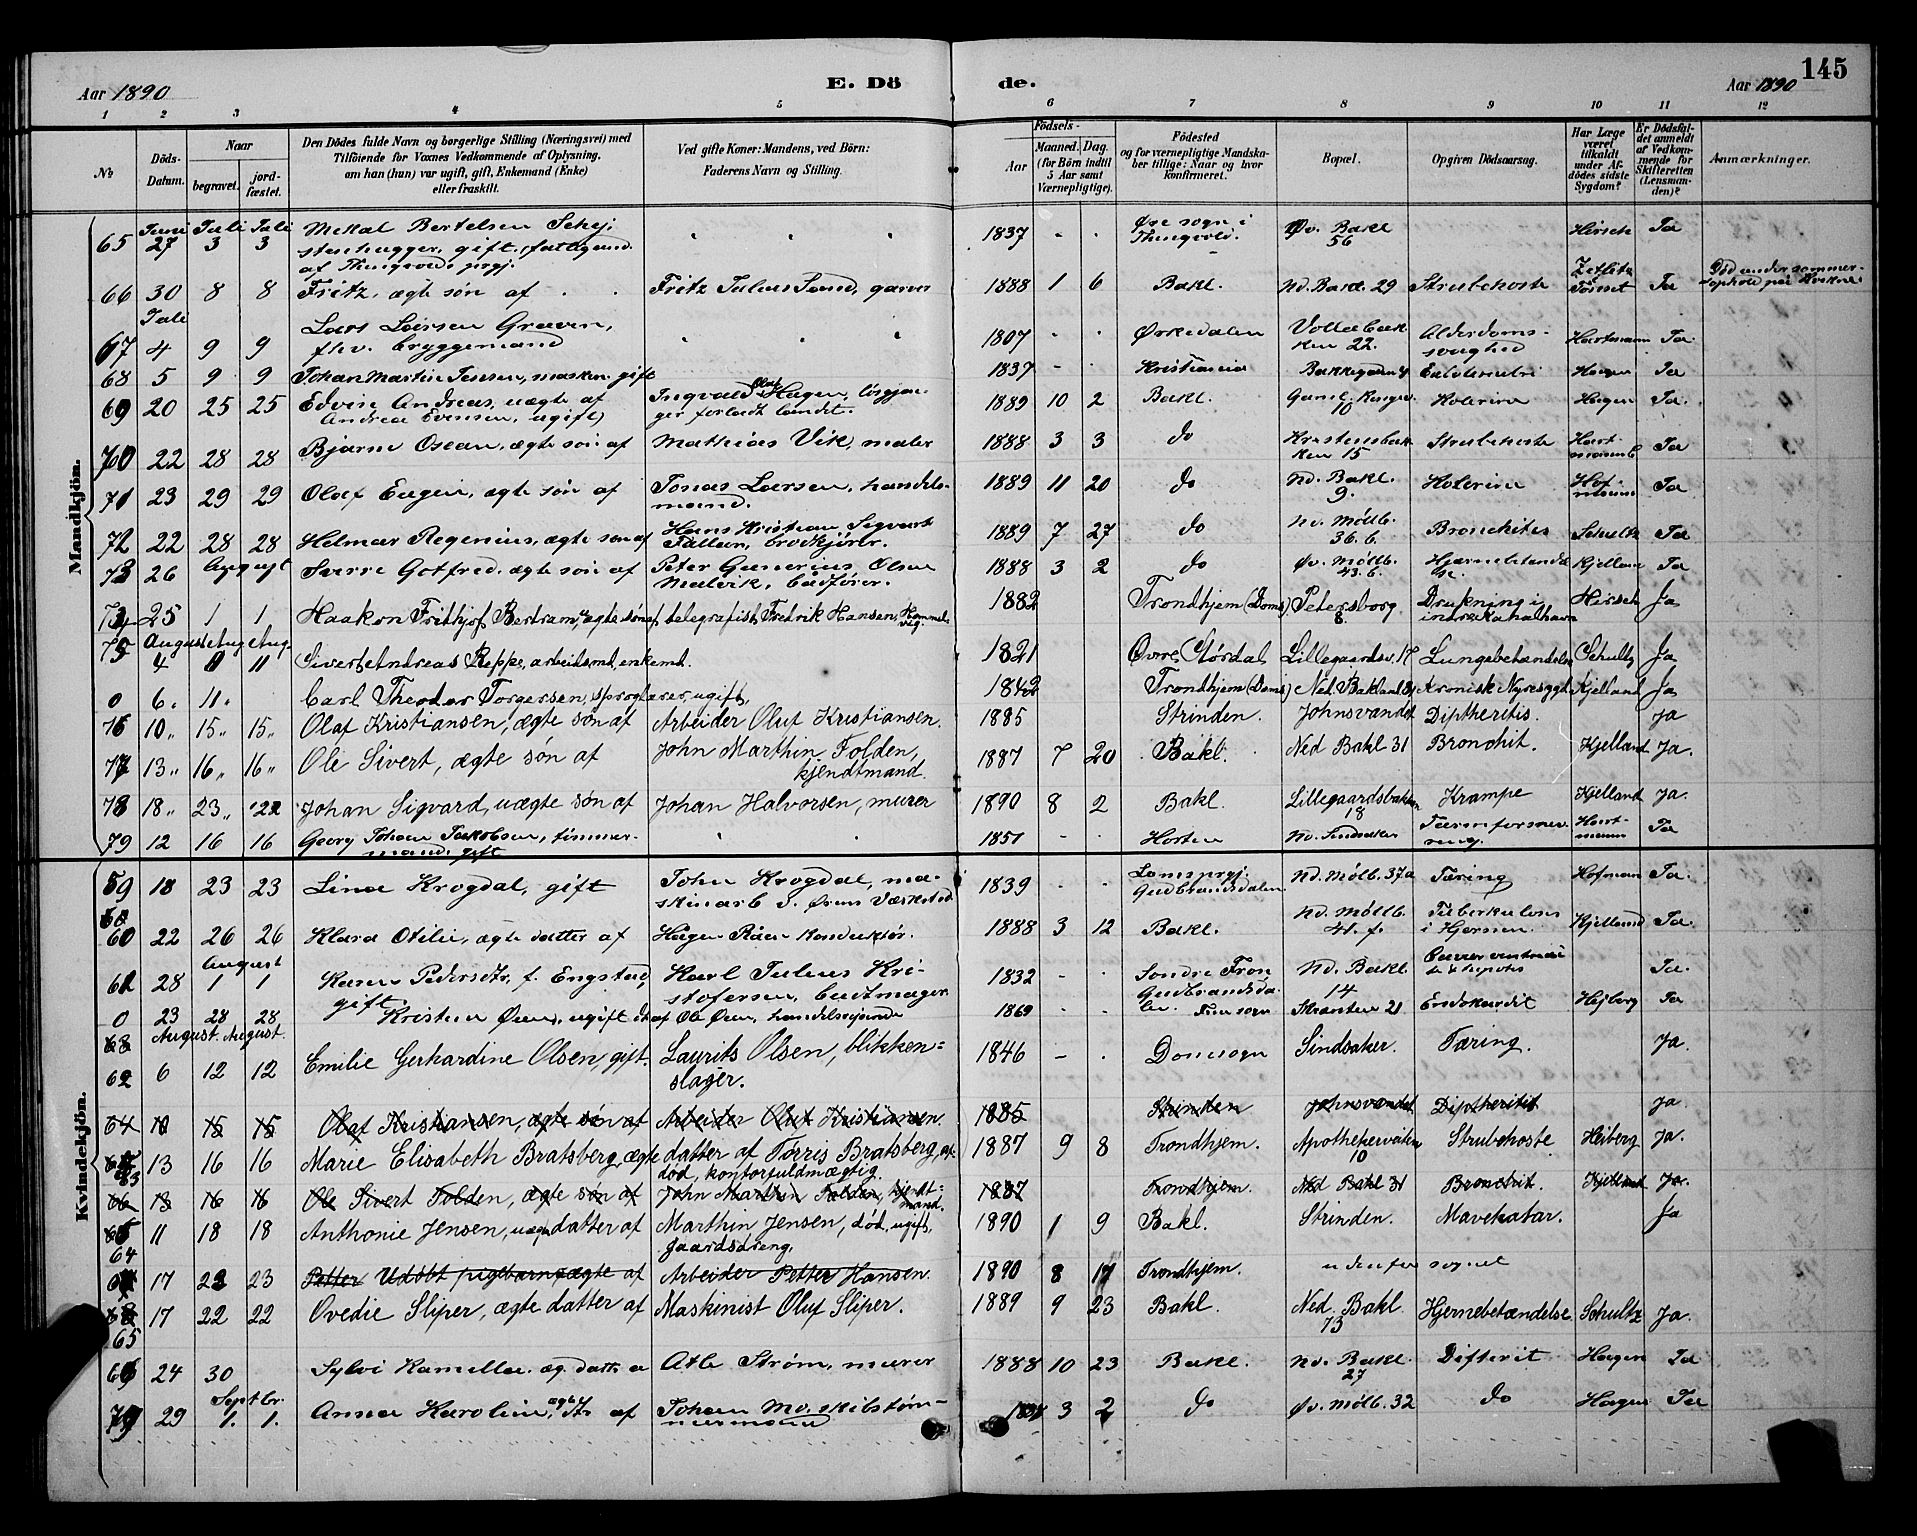 145
Aar 1890
E. Dö de.
Aar 1890
1 2 3 4 5 6 7 8 9 10 11 12
No
Döds-Datum.
Naar
begravet.
jord-fæstet.
Den Dödes fulde Navn og borgerlige Stilling (Næringsvei) med
Tilföiende for Voxnes Vedkommende af Oplysning,
om han (hun) var ugift, gift, Enkemand (Enke)
eller fraskilt.
Ved gifte Koner: Mandens, ved Börn:
Faderens Navn og Stilling.
Födsels-
Aar
Maaned. Dag.
(for Börn indtil
5 Aar samt
Værnepligtige).
Födested
og for værnepligtige Mandska-
ber tillige: Naar og hvor
konfirmeret.
Bopæl.
Opgiven Dödsaarsag.
Har Læge
været
tilkaldt
under Af-
dödes sidste
Sygdom?
Er Dödsfal-
det anmeldt
af Vedkom-
mende for
Skifteretten
(Lensman-
den)?
Anmærkninger.
Mandkjön.
65 Juni 27 Juli 3 Juli 3 Mekal Bertelsen 1837 - - Øre sogn i Thingvold. Øv. Bakl 56 Hirsch Ja
stenhugger, gift, fattigund.
af Thingvold prgj.
66 30 8 8 Fritz, ægte søn af Fritz Julius Sand, garver 1888 1 6 Bakl. Nd. Bakl. 29 Strubehoste Ja Død under sommer-
ophold paa
Juli
67 4 9 9 Lars Larsen Graven, 1807 - - Ørkedalen Volla bak-ken 22. Alderdoms-svaghed Hartmann Ja
flv. bryggemand
68 5 9 9 Johan Martin Jensen, maskin. gift 1837 - - Kristiania Bakkegaden 4 Hagen Ja
69 20 25 25 Edvin Andreas, uægte af Ingvald Olai Hagen, løsgjæn- 1889 10 2 Bakl. 10 Kolerine Hagen Ja.
Andrea Evensen, ugift) ger forladt landet.
70 22 28 28 Bjarne Oscar, ægte søn af Mathias Vik, maler 1888 3 3 do Kristensbak-ken 15 Strubehoste Ja
71 23 29 29 Olaf Eugen, ægte søn af Jonas Larsen, handels-mand. 1889 11 20 do Nd. Bakl. 9. Kolerine Hof-mann Ja
72 22 28 28 Helmar Regenius, ægte søn af Hans Kristian Sigvart 1889 7 27 do Nd. Møllb. 36.b. Bronchites Schultz Ja
73 26 August Sverre Gotfred. ægte søn af Peter Gunerius Olsen 1888 3 2 do Øv. Møllb. 43.b. Hjernebetændel-se. Kjelland Ja
Malvik, bødkører.
74 25 1 1 Haakon Frithjof Bertram, ægte søn af telegrafist Fredrik Hansen 1882 Trondhjem (Doms) Petersborg 8. Drukning i indre Kanalhavn Hirsch Ja
75 August 4 Aug. 11 Aug. 11 Sivert Andreas Reppe, arbeidsmd, enkemd. 1821 Øvre Størdal Lillegaardsv. 17 Lungebetændelse Schultz Ja
0 6. 11. Carl Theodor Torgersen, ugift, 1842 Trondhjem (Doms) Ned. Bakland Kronisk Nyresygd. Kjelland Ja
76 10,, 15,, 15,, Olaf Kristiansen, ægte søn af Arbeider Oluf Kristiansen. 1885 Strinden. Johnsvandet Diptheritis. Ja
77 13,, 16,, 16,, Ole Sivert, ægte søn af John Marthin Folden, kjendtmand. 1887 7 20 Bakl. Ned Bakl 31 Bronchit. Kjelland Ja.
78 18,, 23,, 22 Johan Sigvard, uægte søn af Johan Halvorsen, murer 1890 8 2 Bakl. Lillegaardsbakken 18 Krampe Kjelland Ja.
79 12 16 16 Georg Johan Jakobsen, tömmer-mand, gift 1851 - - Horten Nd. Sindsaker Hart-mann Ja
Kvindekjön.
59 18 23 23 Lina Krogdal, gift John Krogdal, ma-skinarb. v. Ørens Værksted 1839 - - Lomsprgj. Gudbrandsdalen Nd. Møllb. 37a Tæring Hofmann Ja.
60 22 26 26 Klara Otilie, ægte datter af Hagen Råen Konduktør. 1888 3 12 Bakl. Nd. Møllb. 41.f. Tuberkulose i Hjernen. Kjelland Ja.
61 28 August 1 1 Karen Pedersdtr, f. Engstad, gift Karl Julius Kri-stofersen, buntmager 1832 - - Søndre Fron Gudbrandsda-len. Nd. Bakl. 14 Ja.
0 23 28 28 Kristine Øien, ugift dt. af Ole Øien, handelsbetjent 1869 Skansen 21 Endokardit Hejberg Ja
August. August.
62 6 12 12 Emilie Gerhardine Olsen, gift. Laurits Olsen, blikken-slager. 1846 - - Domsogn Sindsaker. Tæring. Ja.
64 10 15 15 Olaf Kristiansen, ægte søn af Arbeider Oluf Kristiansen. 1885 Strinden Johnsvandet Diptheritis Ja
63 13 16 16 Marie Elisabeth Bratsberg, ægte datter af Torris Bratsberg, af-død, kontorfuldmægtig. 1887 9 8 Trondhjem. Apothekerveiten 10 Strubehoste Heiberg Ja.
66 13 16 16 Ole Sivert Folden, ægte søn af John Marthin Folden, kjendt-mand. 1887 Trondhjem. Ned Bakl 31 Bronchit. Kjelland Ja.
64 11 18 18 Anthonie Jensen, uægte datter af Marthin Jensen, død, ugift, gaardsdreng. 1890 1 9 Bakl. Strinden. Mavekatar. Ja
17 23 23 Petter Udöbt pigebarn, ægte af Arbeider Petter Hansen. 1890 8 17 Trondhjem. udenfor sognet
65 17 22 22 Ovedie Sliper, ægte datter af Maskinist Oluf Sliper. 1889 9 23 Bakl. Ned. Bakl. 73 Hjernebetændelse. Schultz Ja.
66 24 30 Sylvi Kamilla. æg. datt. a Atle Strøm, murer 1888 10 23 Bakl. Nd. Bakl. 27 Difterit Hagen Ja
29 Septbr. 1. 1. Anna Karoline, ægte dtr af Johan 3 2 do Øv. Møllb. 32 do Hagen Ja